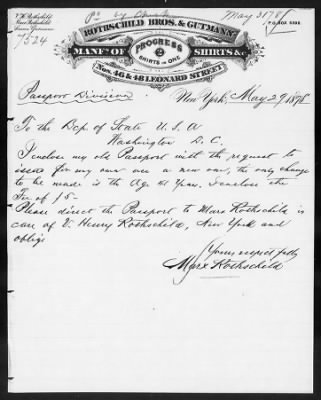 May 31 78
V. H. Rothschild
Marx Rothschild
7524
P.O. BOX 5336
ROTHSCHILD BROS. & GUTMANN
MANFRS OF PROGRESS SHIRTS &c.
2 SHIRTS IN ONE
Nos. 46 & 48 LEONARD STREET
Passport Division
New York, May 29 1878
To the Dep. of State U. S. A
Washington D. C.
I enclose my old Passport with the request to
issue for my own use a new one, the only change
to be made is the Age at Year. I enclose the
Fee of $5-
Please direct the Passport to Marx Rothschild in
care of V. Henry Rothschild, New York and
oblige
Yours respectfully
Marx Rothschild